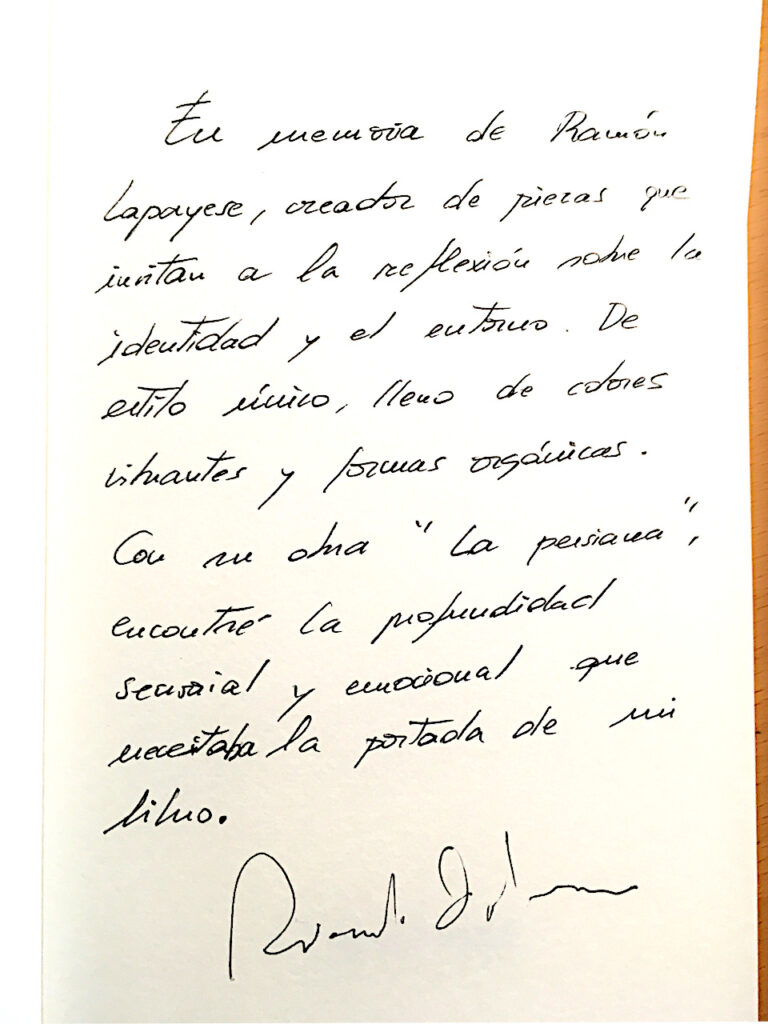 En memoria de Ramón
Lapayese, creador de piezas que
invitan a la reflexión sobre la
identidad y el entorno. De
estilo único, lleno de colores
vibrantes y formas orgánicas.
Con su obra "La persiana",
encontré la profundidad
sensorial y emocional que
necesitaba la portada de mi
libro.